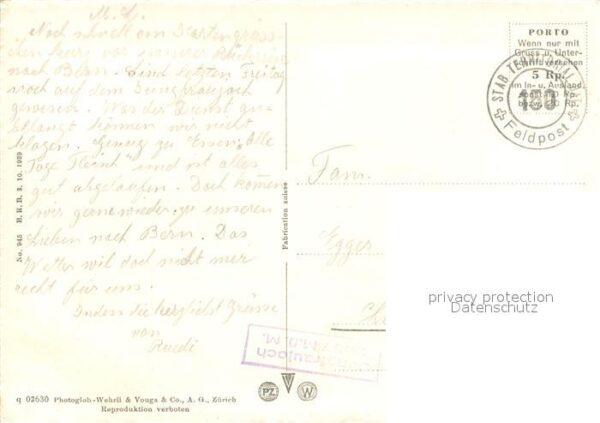 M. L.
Noch schnell ein Kartengrüss-
chen kurz vor unserer
nach Bern. Sind letzten Freitag
noch auf dem Jungfraujoch
gewesen. Was der Dienst an-
klangt können wir nicht
klagen. Genug zu Essen, Alle
Tage Fleisch und ist alles
gut abgelaufen. Doch kommen
wir gerne wieder zu unseren
Lieben nach Bern. Das
Wetter will doch nicht mer
recht für uns.
Indem die herzlichst Grüsse
von
Ruedi
q 02630 Photoglob-Wehrli & Vouga & Co., A. G., Zürich
Reproduktion verboten
No. 945 H. K. B. 3. 10. 1939
Fabrication suisse
PORTO
Wenn nur mit
Gruss u. Unter-
schrift versehen
5 Rp.
im In- u. Ausland
bezw. Rp.
STAB TERRITORIAL
Feldpost
Fam.
Egger
PZ
W
privacy protection
Datenschutz